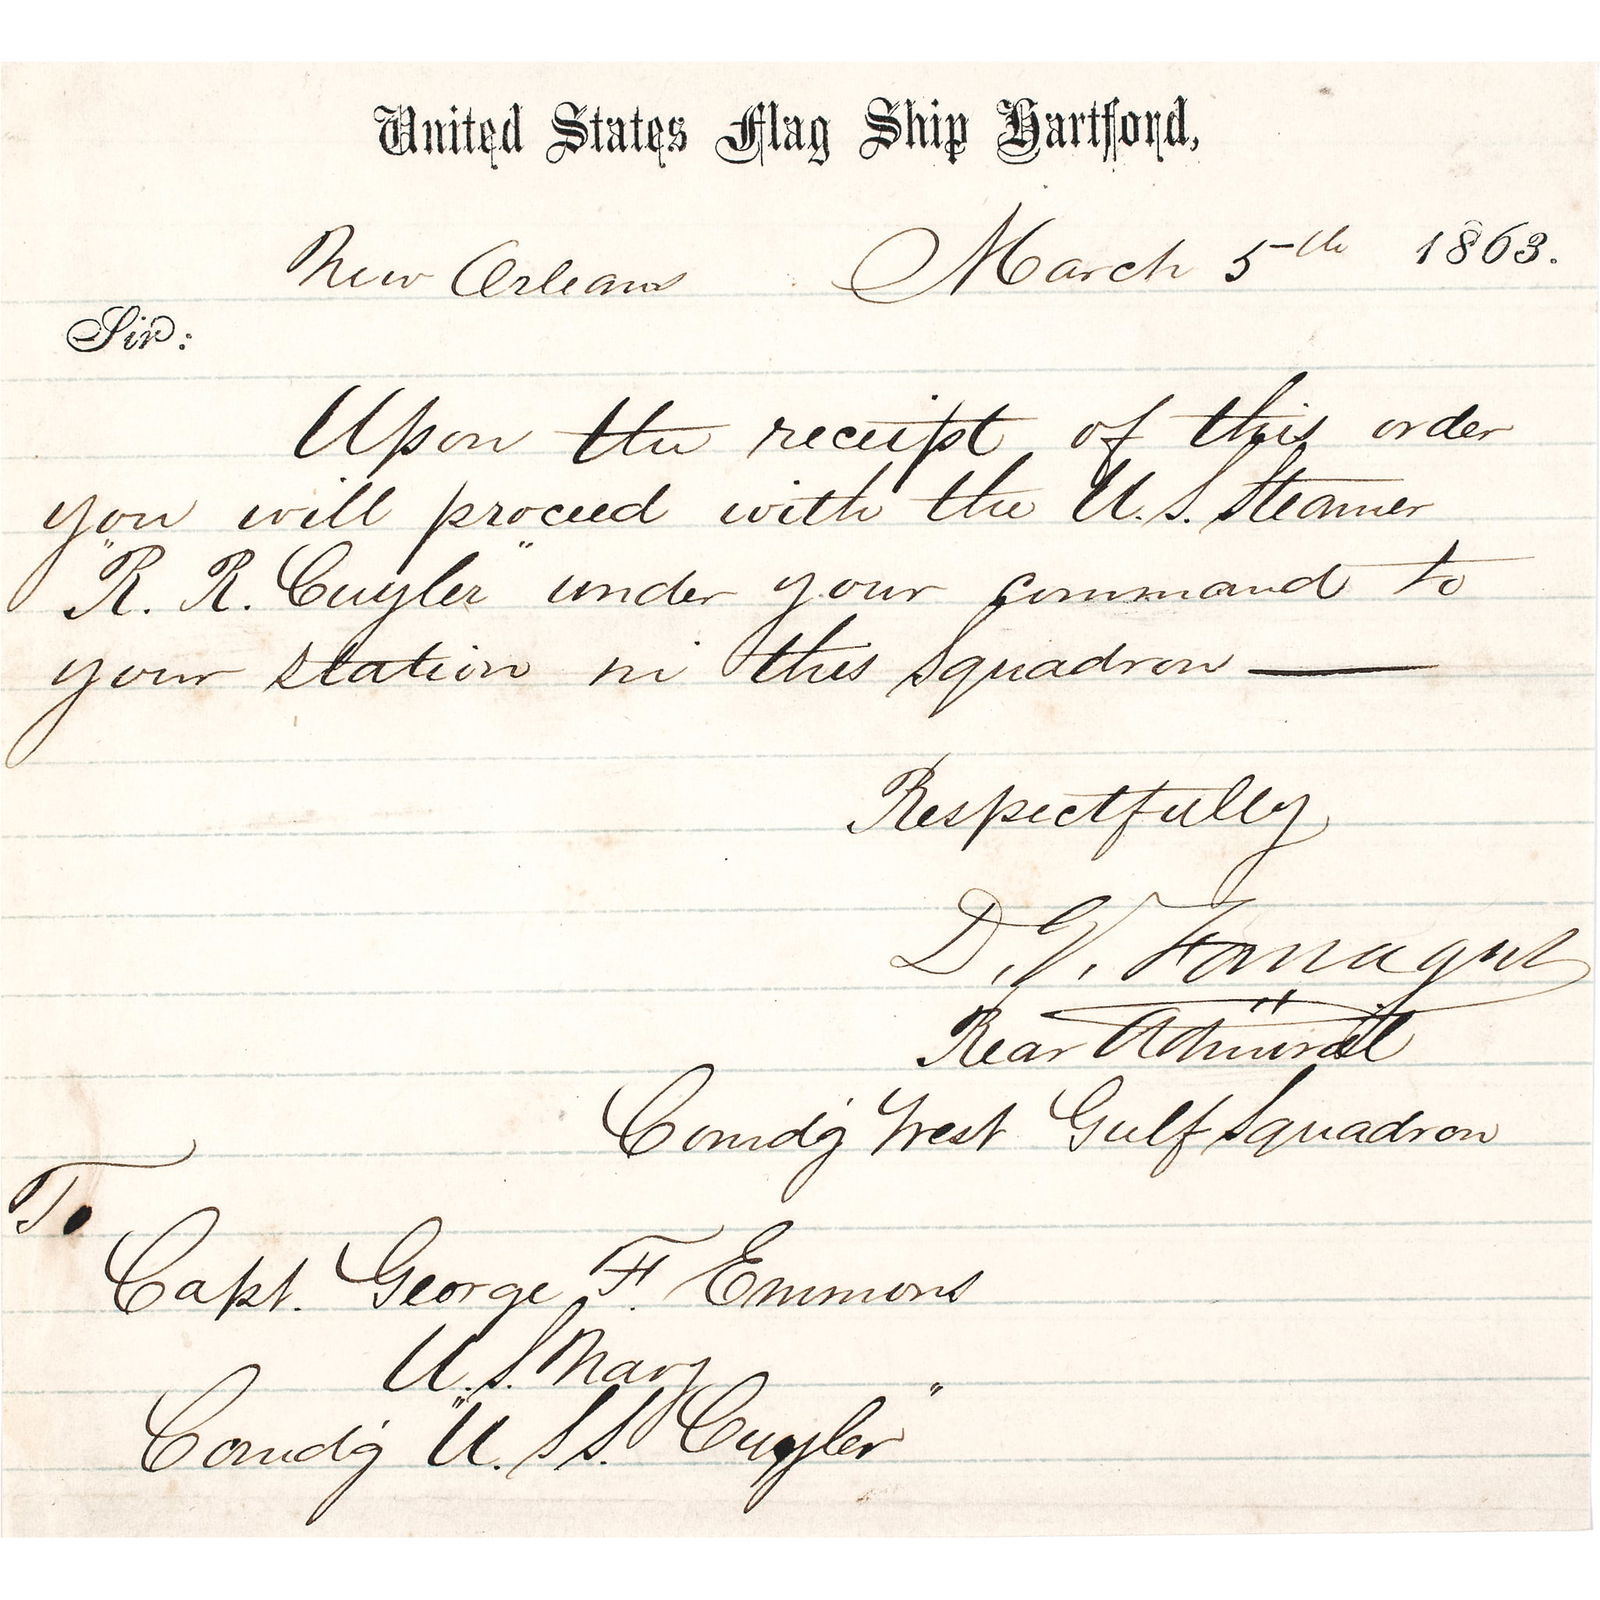 United States Flag Ship Hartford,
New Orleans March 5th 1863.
Sir:
Upon the receipt of this order
you will proceed with the U.S. Steamer
"R. R. Cuyler" under your command to
your station in this Squadron —
Respectfully
D. G. Farragut
Rear Admiral
Comdg West Gulf Squadron
To
Capt. George F. Emmons
U.S. Navy
Comdg "U.S.S. Cuyler"